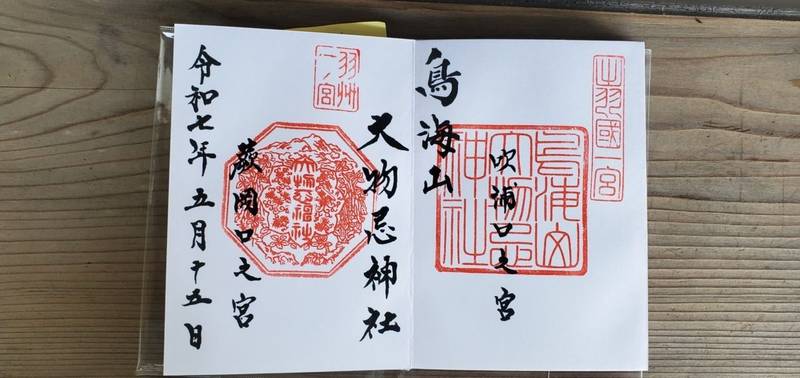 出羽國一宮
鳥海山
大物忌
神社
吹浦口之宮
鳥海山
大物忌神社
羽州
一ノ宮
大物忌神社
蕨岡口之宮
令和七年五月十五日